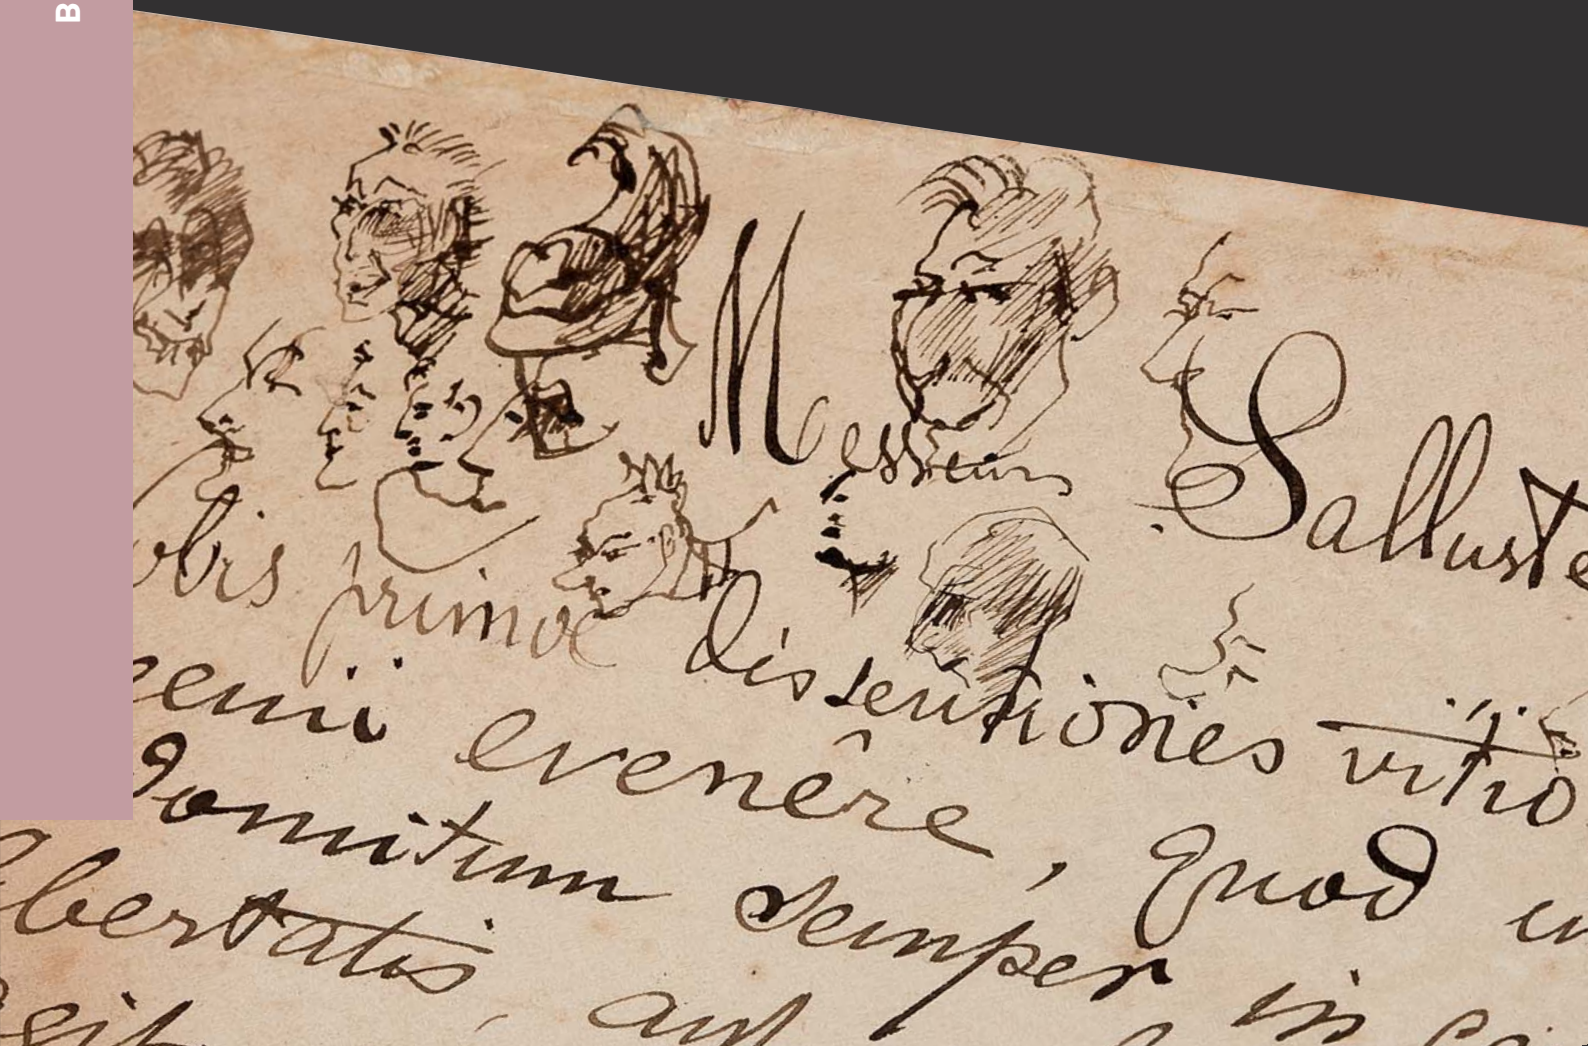 B
Messieurs Salluste
obis primae dissensiones vitio
genii evenêre, quod
Domitum semper in
libertatis, aut